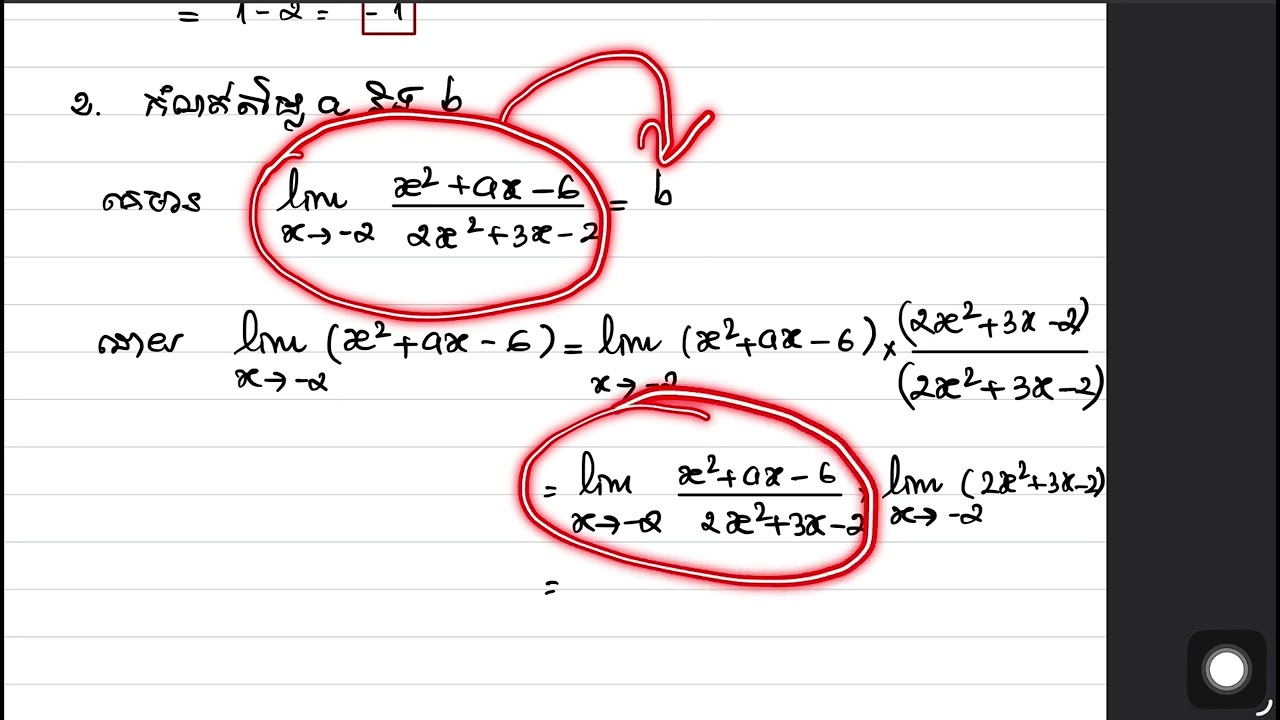 = 1 - 2 = -1
2. កំណត់តម្លៃ a និង b
គេមាន lim x→-2 (x² + ax - 6)/(2x² + 3x - 2) = b
ដោយ lim x→-2 (x² + ax - 6) = lim x→-2 (x² + ax - 6) × (2x² + 3x - 2)/(2x² + 3x - 2)
= lim x→-2 (x² + ax - 6)/(2x² + 3x - 2) · lim x→-2 (2x² + 3x - 2)
=